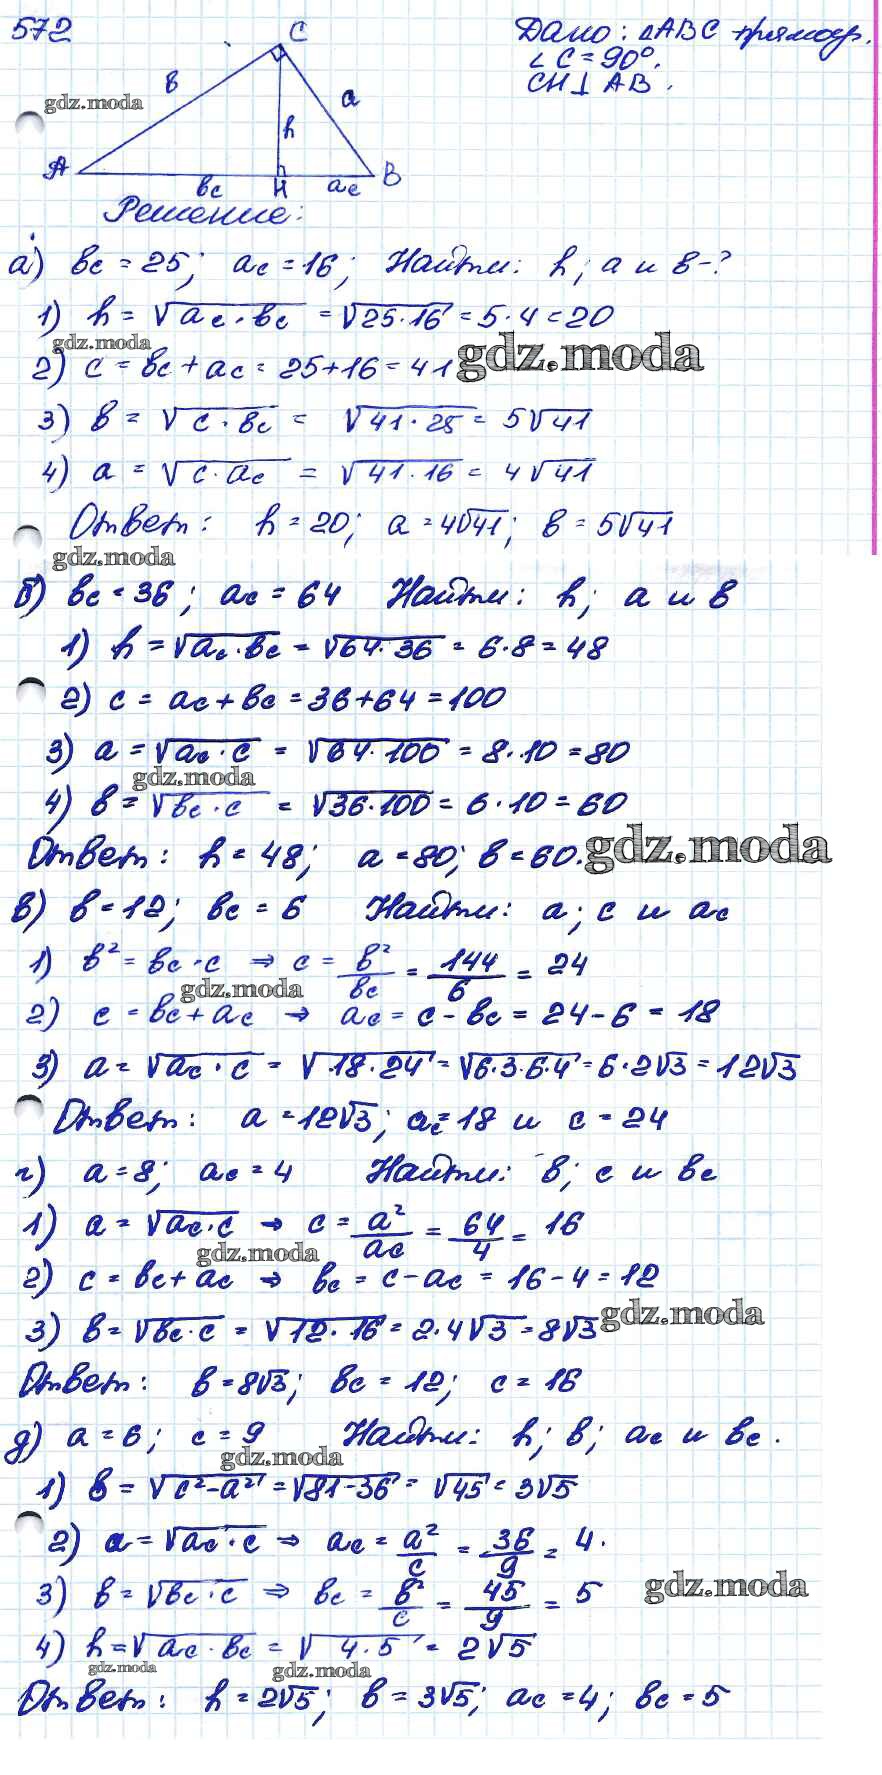 572
Дано: △ABC прямоуг.
∠C = 90°.
CH ⊥ AB.
C
в
a
gdz.moda
h
A
B
вc
H
ac
Решение:
а) вc = 25; ac = 16; Найти: h; a и в-?
1) h = √(ac·вc) = √(25·16) = 5·4 = 20
gdz.moda
2) c = вc + ac = 25+16 = 41
gdz.moda
3) в = √(c·вc) = √(41·25) = 5√41
4) a = √(c·ac) = √(41·16) = 4√41
Ответ: h = 20; a = 4√41; в = 5√41
gdz.moda
б) вc = 36; ac = 64 Найти: h; a и в
1) h = √(ac·вc) = √(64·36) = 6·8 = 48
2) c = ac + вc = 36+64 = 100
3) a = √(ac·c) = √(64·100) = 8·10 = 80
gdz.moda
4) в = √(вc·c) = √(36·100) = 6·10 = 60
Ответ: h = 48; a = 80; в = 60.
gdz.moda
в) в = 12; вc = 6 Найти: a; c и ac
1) в² = вc·c ⇒ c = в²/вc = 144/6 = 24
gdz.moda
2) c = вc + ac ⇒ ac = c - вc = 24 - 6 = 18
3) a = √(ac·c) = √(18·24) = √(6·3·6·4) = 6·2√3 = 12√3
Ответ: a = 12√3; ac = 18 и c = 24
г) a = 8; ac = 4 Найти: в; c и вc
1) a = √(ac·c) ⇒ c = a²/ac = 64/4 = 16
gdz.moda
2) c = вc + ac ⇒ вc = c - ac = 16 - 4 = 12
3) в = √(вc·c) = √(12·16) = 2·4√3 = 8√3
gdz.moda
Ответ: в = 8√3; вc = 12; c = 16
д) a = 6; c = 9 Найти: h; в; ac и вc.
gdz.moda
1) в = √(c²-a²) = √(81-36) = √45 = 3√5
2) a = √(ac·c) ⇒ ac = a²/c = 36/9 = 4.
3) в = √(вc·c) ⇒ вc = в²/c = 45/9 = 5
gdz.moda
4) h = √(ac·вc) = √(4·5) = 2√5
gdz.moda
gdz.moda
Ответ: h = 2√5; в = 3√5; ac = 4; вc = 5